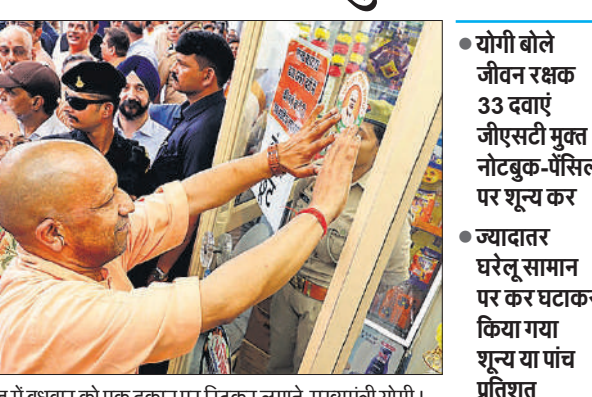 ● योगी बोले
जीवन रक्षक
33 दवाएं
जीएसटी मुक्त
नोटबुक-पेंसिल
पर शून्य कर
● ज्यादातर
घरेलू सामान
पर कर घटाकर
किया गया
शून्य या पांच
प्रतिशत
में बुधवार को एक दुकान पर स्टिकर लगाते मुख्यमंत्री योगी।